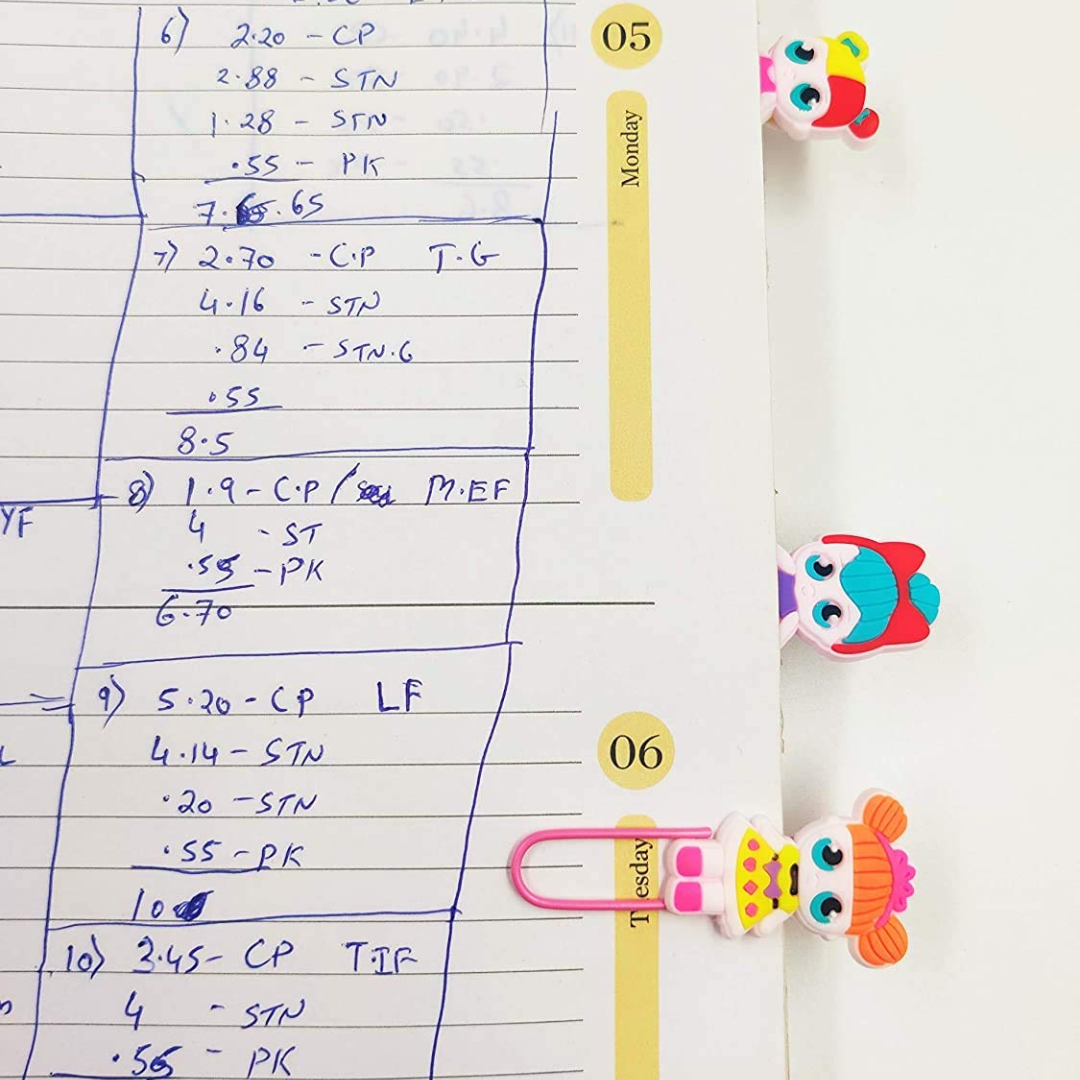 6) 2.20 - CP
2.88 - STN
1.28 - STN
.55 - PK
7. .65
7) 2.70 - C.P T.G
4.16 - STN
.84 - STN.G
.55
8.5
8) 1.9 - C.P / M.EF
4 - ST
.55 - PK
6.70
9) 5.20 - CP LF
4.14 - STN
.20 - STN
.55 - PK
10
10) 3.45 - CP T.IF
4 - STN
.55 - PK
YF
05
Monday
06
T esday